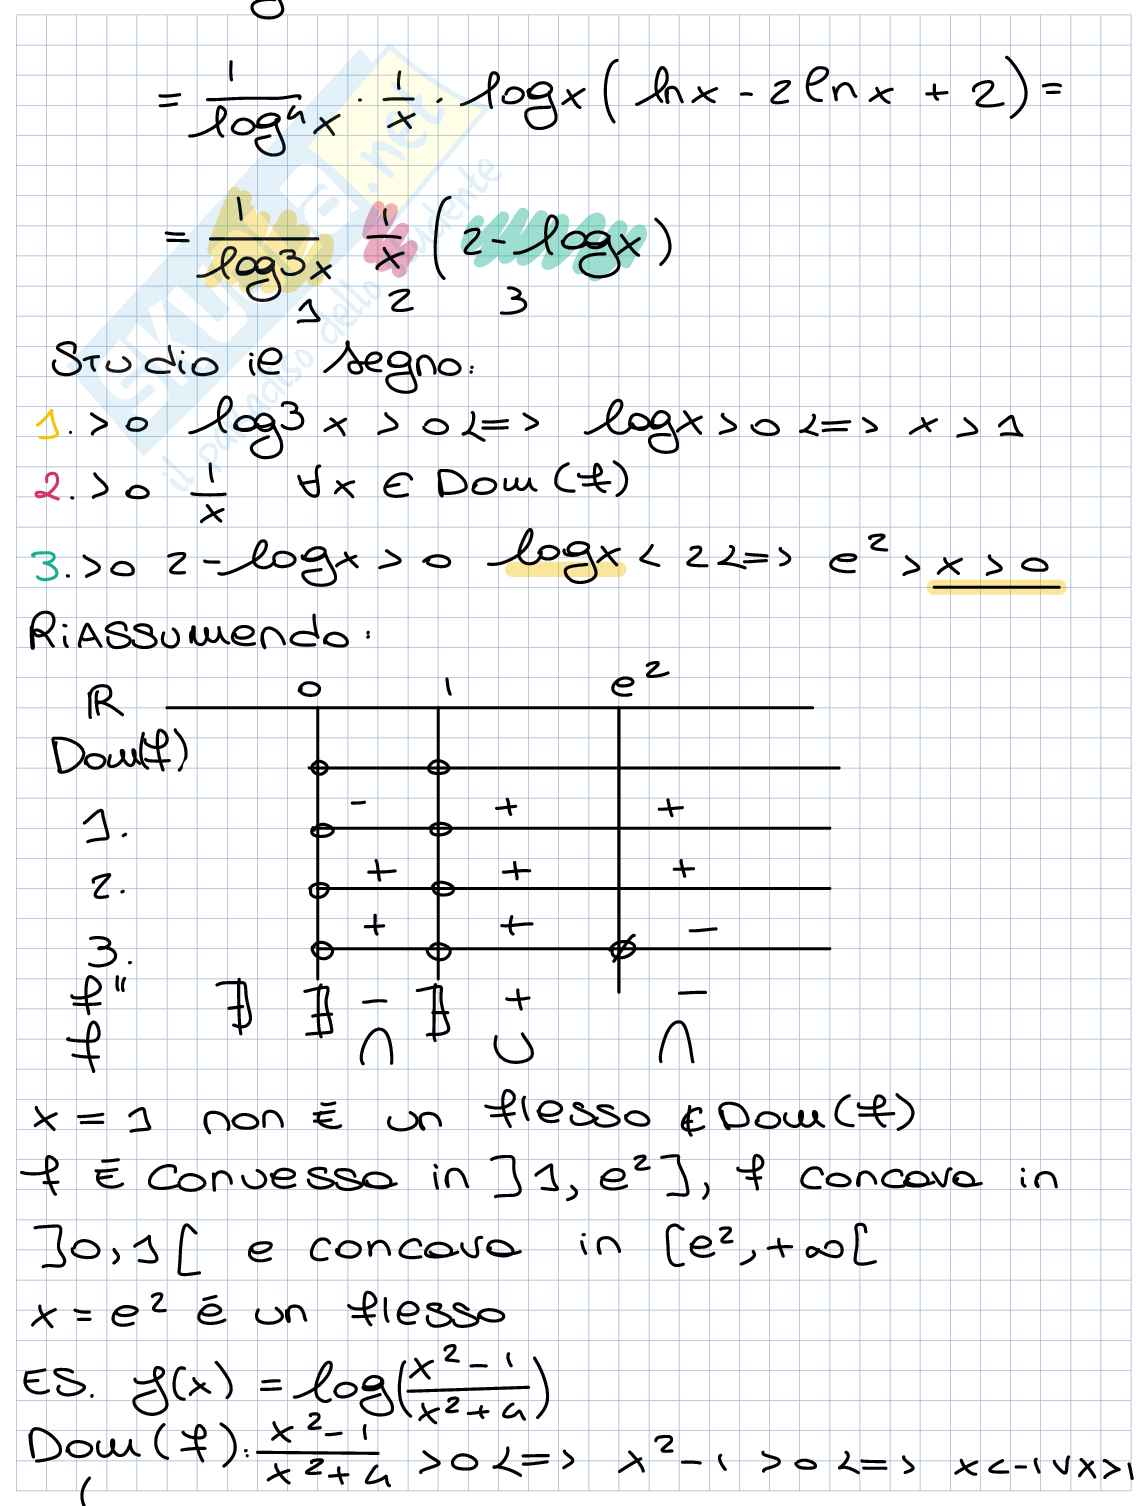 = 1/log⁴x · 1/x · logx ( lnx - 2lnx + 2 ) =
= 1/log3x 1/x ( 2 - logx )
1 2 3
Studio il segno:
1. > 0 log3 x > 0 <=> logx > 0 <=> x > 1
2. > 0 1/x ∀x ∈ Dom (f)
3. > 0 2 - logx > 0 logx < 2 <=> e² > x > 0
RiASSumendo:
ℝ 0 1 e²
Dom(f)
1. - + +
2. + + +
3. + + -
f'' ∄ ∄ - ∄ + -
f ∩ ∪ ∩
x = 1 non È un flesso ∉ Dom (f)
f È convessa in ]1, e²], f concava in
]0, 1[ e concava in [e², +∞[
x = e² è un flesso
ES. f(x) = log(x² - 1/x² + 4)
Dom (f): x² - 1/x² + 4 > 0 <=> x² - 1 > 0 <=> x < -1 ∨ x > 1
SKUOLA.net
il paradiso dello studente